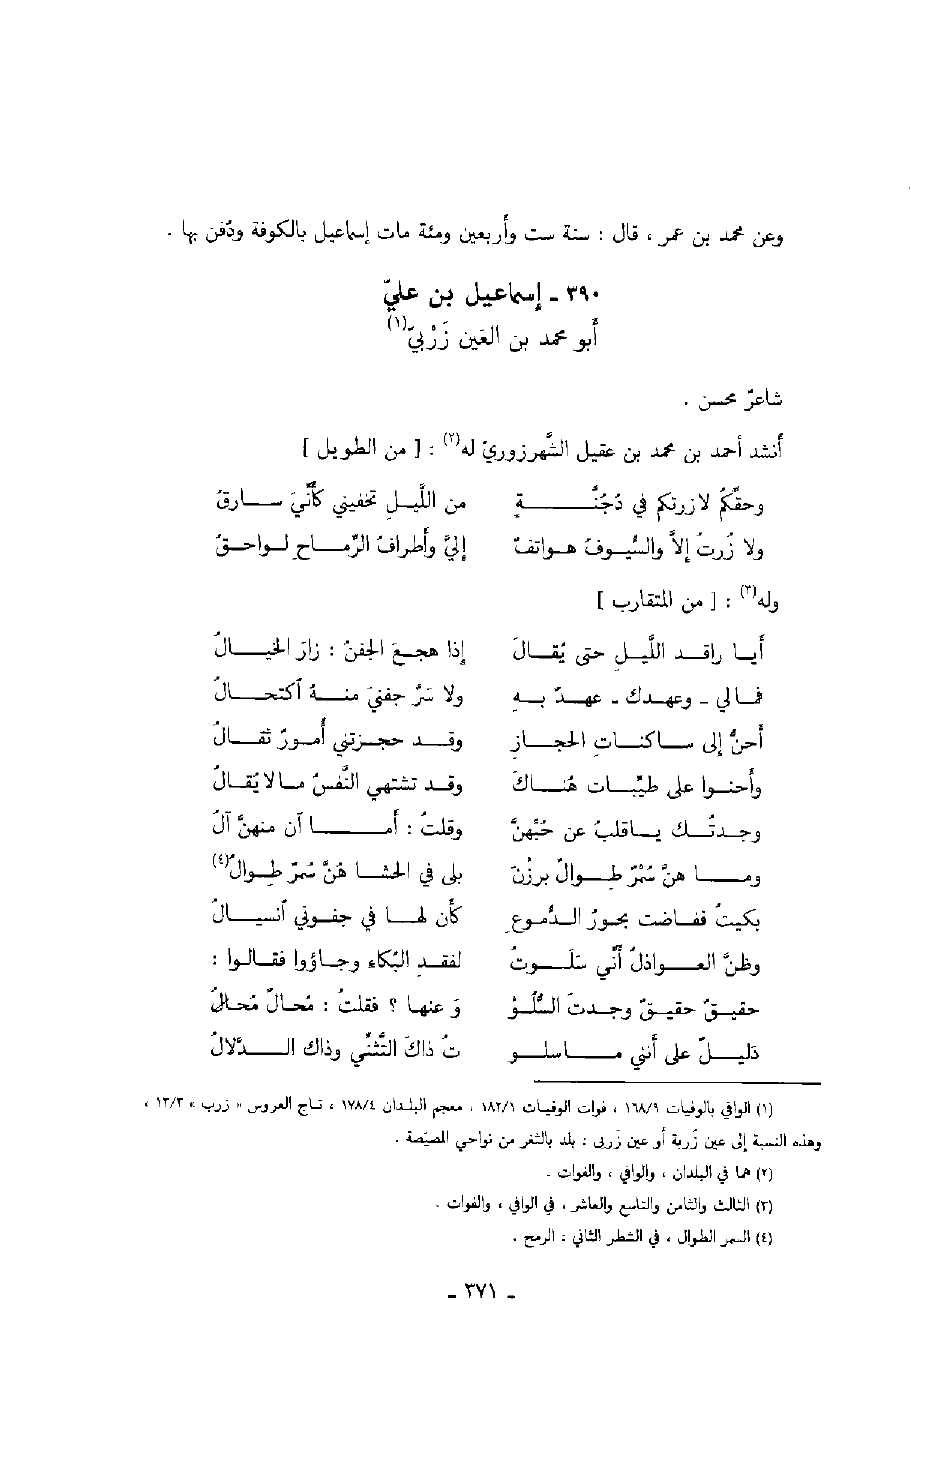 وعن محمد بن عمر ، قال : سنة ست وأربعين ومئة مات إسماعيل بالكوفة ودُفن بها .
٣٩٠ ـ إسماعيل بن عليّ
أبو محمد بن العَين زَرْبيّ(١)
شاعرٌ محسن .
أنشد أحمد بن محمد بن عقيل الشَّهرزوريّ له(٢) : [ من الطويل ]
وحقِّكمُ لا زرتكم في دُجُنَّــةٍ من اللَّيـل تخفيني كأنّيَ ســارقُ
ولا زُرتُ إلاَّ والسُّيوفُ هـواتفٌ إليَّ وأطرافُ الرِّمـاحِ لـواحـقُ
وله(٣) : [ من المتقارب ]
أيـا راقـد اللَّيـلِ حتى يُقـالَ إذا هجـعَ الجفنُ : زارَ الخيـالُ
فمـالي ـ وعهـدك ـ عهـدٌ بـه ولا سَرَّ جفنيَ منـهُ اكتحـالُ
أحنُّ إلى سـاكنـاتِ الحجـازِ وقـد حجـزتني أمـورٌ ثقـالُ
وأحنـوا على طيِّبـات هُنـاكَ وقـد تشتهي النَّفسُ مـا لا يُقـالُ
وجـدتُـك يـاقلبُ عن حُبِّهنَّ وقلتُ : أمـا آن منهنَّ آلُ
ومـا هنَّ سُمْرٌ طـوالٌ برزْنَ بلى في الحشـا هُنَّ سُمرٌ طـوالُ(٤)
بكيتُ ففـاضت بحورُ الـدُّمـوعِ كأن لهـا في جفـوني أنسيـالُ
وظنَّ العـواذلُ أنّي سَلَـوتُ لفقـدِ البُكاء وجـاؤوا فقـالـوا :
حقيـقٌ حقيـقٌ وجـدتَ السُّلُـوْ وَ عنهـا ؟ فقلتُ : مُحـالٌ مُحالُ
دَليـلٌ على أنني مـاسلـو تُ ذاكَ التَّثنِّي وذاك الـدَّلالُ
(١) الوافي بالوفيات ١٦٨/٩ ، فوات الوفيـات ١٨٢/١ ، معجم البلـدان ١٧٨/٤ ، تـاج العروس « زرب » ١٢/٣ ،
وهذه النسبة إلى عين زَربة أو عين زَربى : بلد بالثغر من نواحي المصّيصة .
(٢) هما في البلدان ، والوافي ، والفوات .
(٣) الثالث والثامن والتاسع والعاشر ، في الوافي ، والفوات .
(٤) السمر الطوال ، في الشطر الثاني : الرمح .
ـ ٣٧١ ـ